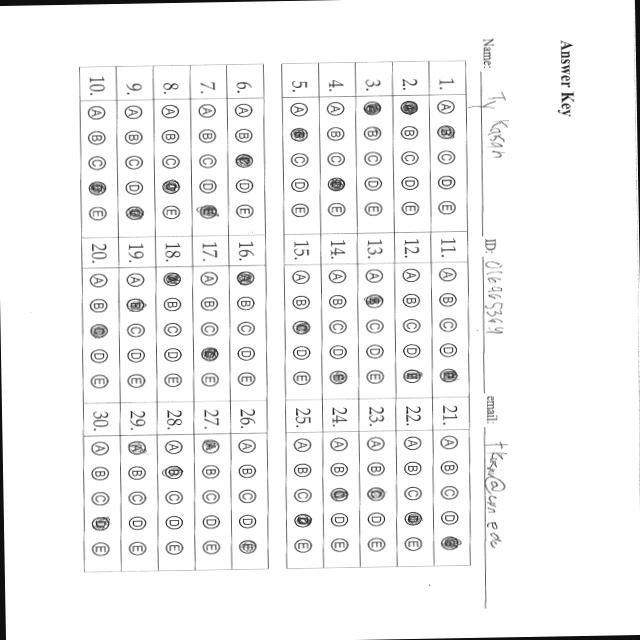 Answer Key
Name: Ty Kasan ID: 016965364 email: tkasan@uwm edu
1. A B C D E 11. A B C D E 21. A B C D E
2. A B C D E 12. A B C D E 22. A B C D E
3. A B C D E 13. A B C D E 23. A B C D E
4. A B C D E 14. A B C D E 24. A B C D E
5. A B C D E 15. A B C D E 25. A B C D E
6. A B C D E 16. A B C D E 26. A B C D E
7. A B C D E 17. A B C D E 27. A B C D E
8. A B C D E 18. A B C D E 28. A B C D E
9. A B C D E 19. A B C D E 29. A B C D E
10. A B C D E 20. A B C D E 30. A B C D E